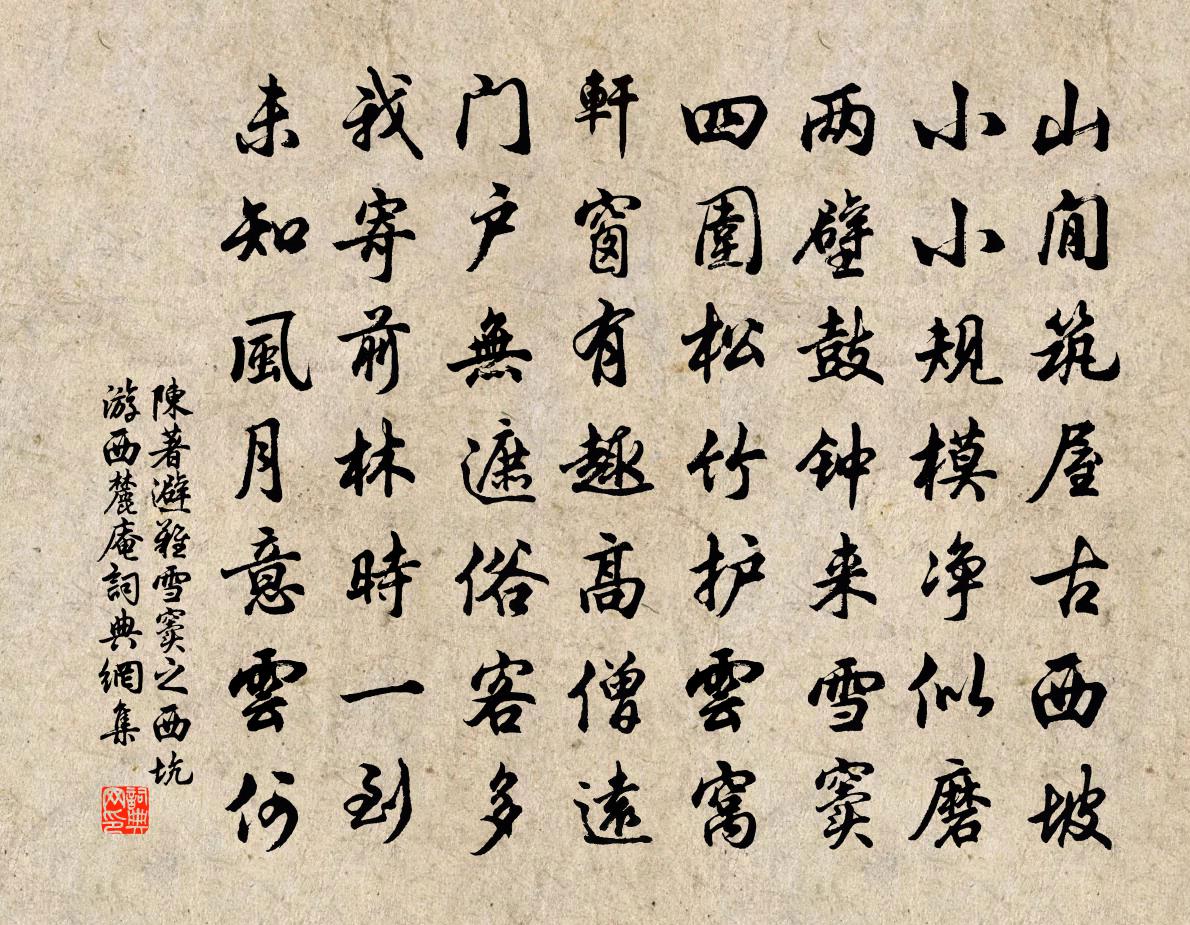 山間筑屋古西坡
小小規模净似磨
两壁鼓钟来雪窦
四圍松竹护雲窩
軒窗有趣高僧遠
门户無遮俗客多
我寄前林時一到
未知風月意雲何
陳著避難雪窦之西坑
游西麓庵詞典網集
詞典网印